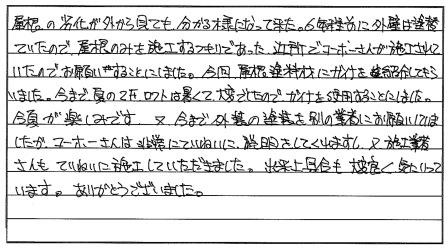 屋根の劣化が外から見ても分かる様になって来た。6年程前に外壁は塗替
ていたので、屋根のみを施工するつもりであった。近所でコーホーさんが施工されて
いたのでお願いすることにしました。今回、屋根塗料材にガイナを紹介してもら
いました。今まで夏の2Fロフトは暑くて大変でしたのでガイナを使用することにしました。
今夏が楽しみです。又今まで外装の塗装を別の業者にお願いしてま
したが、コーホーさんは非常にていねいに説明をしてくれますし、又施工業者
さんもていねいに施工していただきました。出来上具合も大変良く気に入って
います。ありがとうございました。